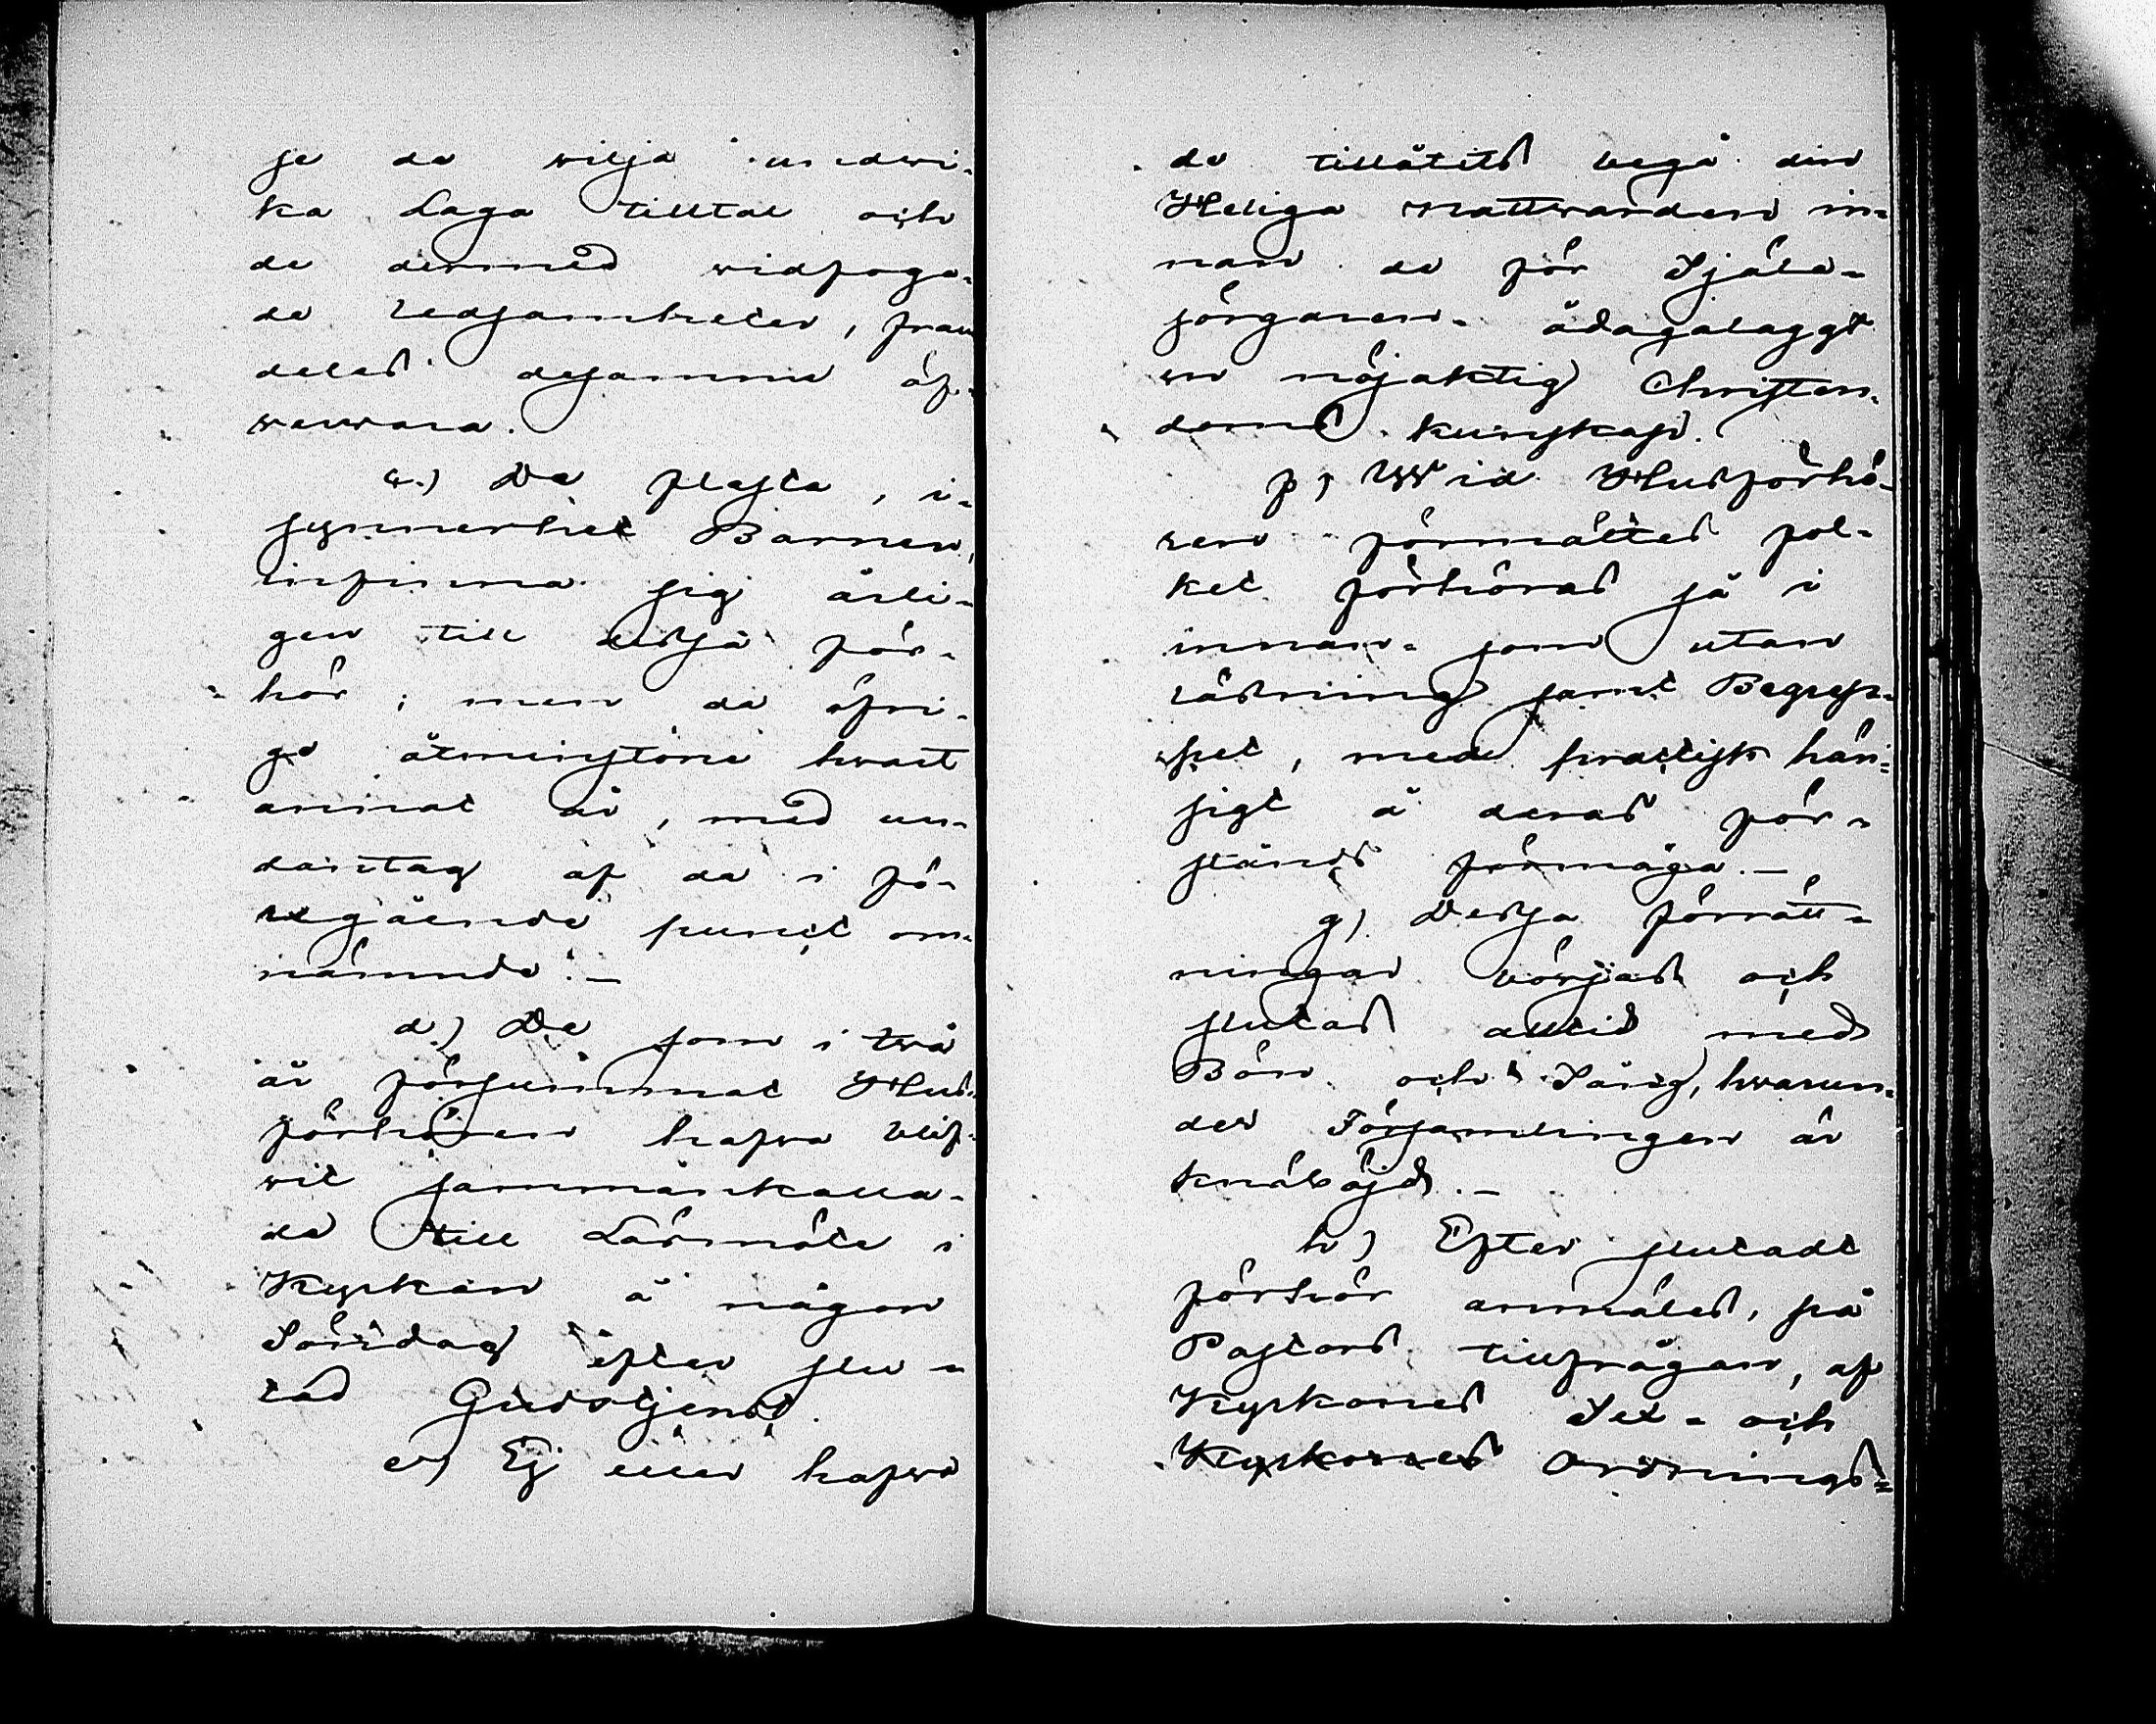 se de wilja undwi-
ka Laga tilltal och
de dermed widfoga-
de ledsamheter, fram-
deles desamme öf-
wervara.
c.) De flesta, i-
synnerhet Barnen,
infinna sig årli-
gen till dessa för-
hör; men de öfri-
ge åtminstone hvart
annat år, med un-
dantag af de i fö-
regående punct om-
nämnde.—
d.) De som i twå
år försummat Hus-
förhören hafva blif-
vit sammankalla-
de till Läsmöte i
Kyrkan å någon
Söndag efter slu-
tad Gudstjenst.
e) Ej eller hafva
de tillåtits begå den
Heliga Nattvarden in-
nan de för Själa-
sörgaren ådagalaggt
en nöjaktig Christen-
doms kunskap.
f) Wid Husförhö-
ren förmåttes fol-
ket förhöras så i
innan- som utan
läsning samt Begrep-
pet, med practisk hän-
sigt å deras för-
stånds förmåga.—
g) Dessa förrätt-
ningar börjas och
slutas alltid med
Bön och Sång, hvarun-
der Församlingen är
knäböjd.—
h) Efter slutadt
förhör anmäles, på
Pastors tillfrågan, af
Kyrkones Sex- och
Kyrkones Ordnings-